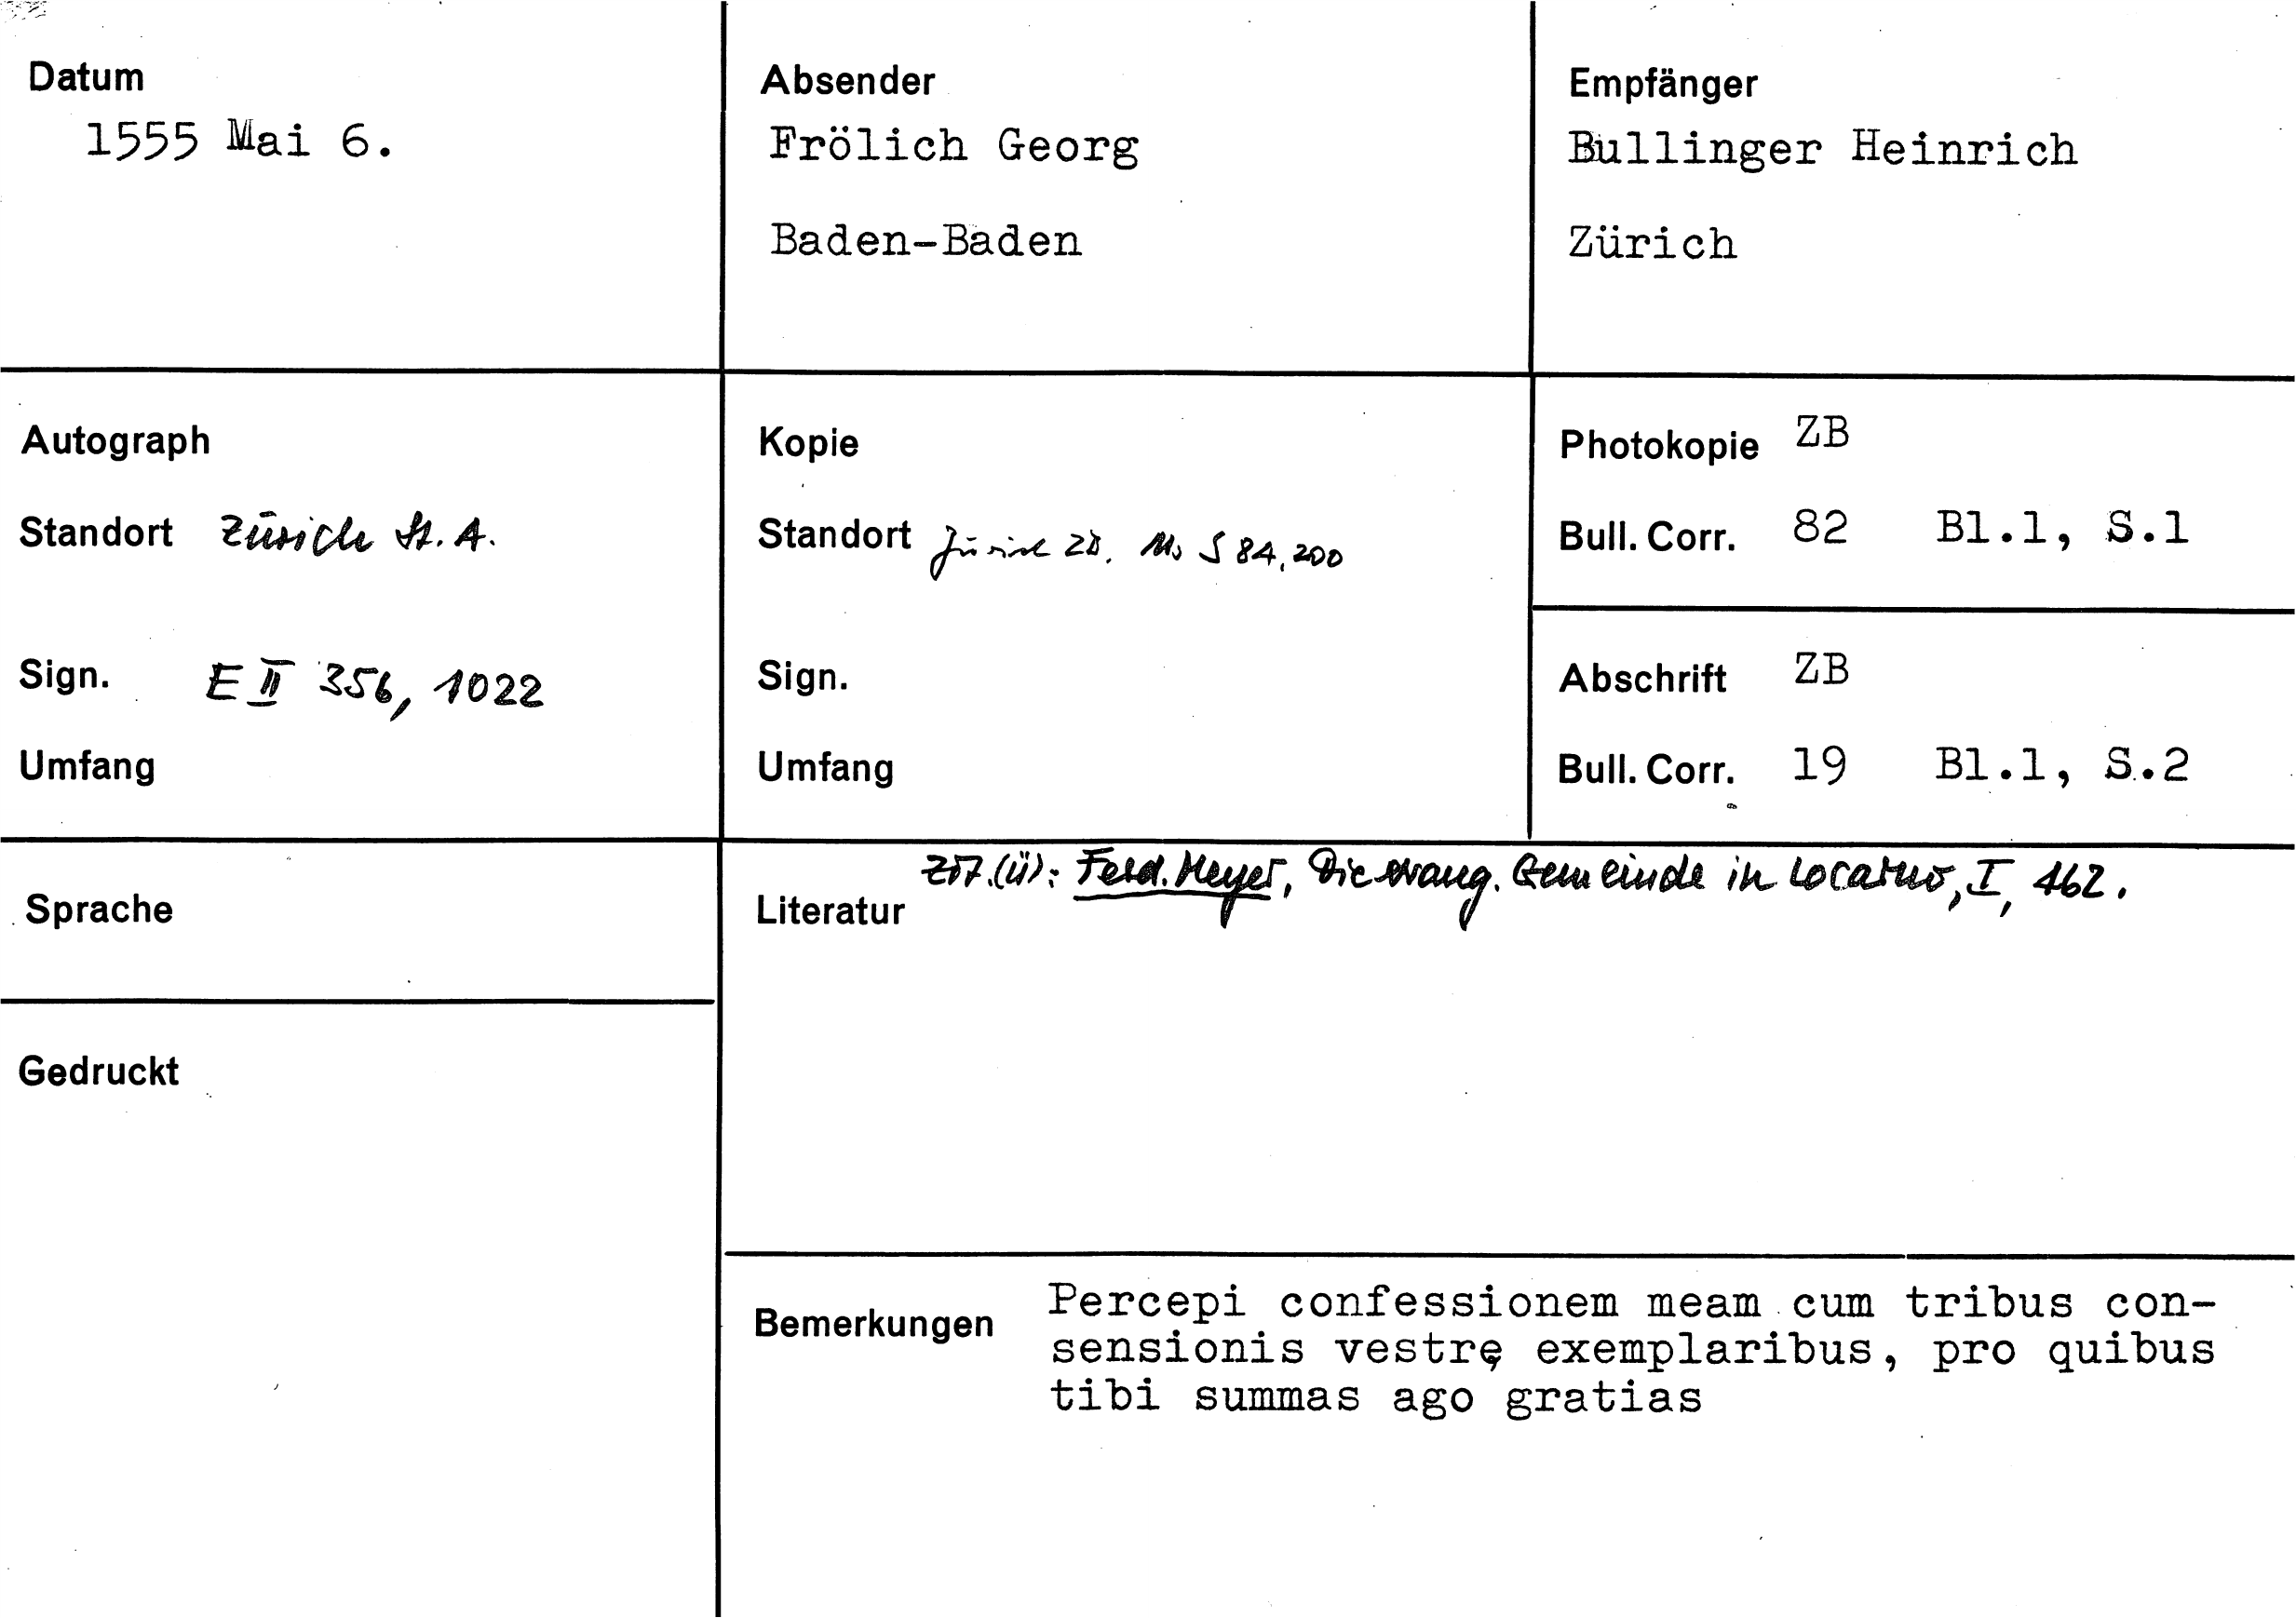 Datum
1555 Mai 6.
Absender
Frölich Georg
Baden-Baden
Empfänger
Bullinger Heinrich
Zürich
Autograph
Standort Zürich St. A.
Sign. E II 356, 1022
Umfang
Kopie
Standort Zürich ZB. Ms S 84, 200
Sign.
Umfang
Photokopie ZB
Bull. Corr. 82 Bl.1, S.1
Abschrift ZB
Bull. Corr. 19 Bl.1, S.2
Sprache
Gedruckt
Literatur Zit. (ü): Ferd. Meyer, Die evang. Gemeinde in Locarno, I, 462.
Bemerkungen Percepi confessionem meam cum tribus con-
sensionis vestrę exemplaribus, pro quibus
tibi summas ago gratias